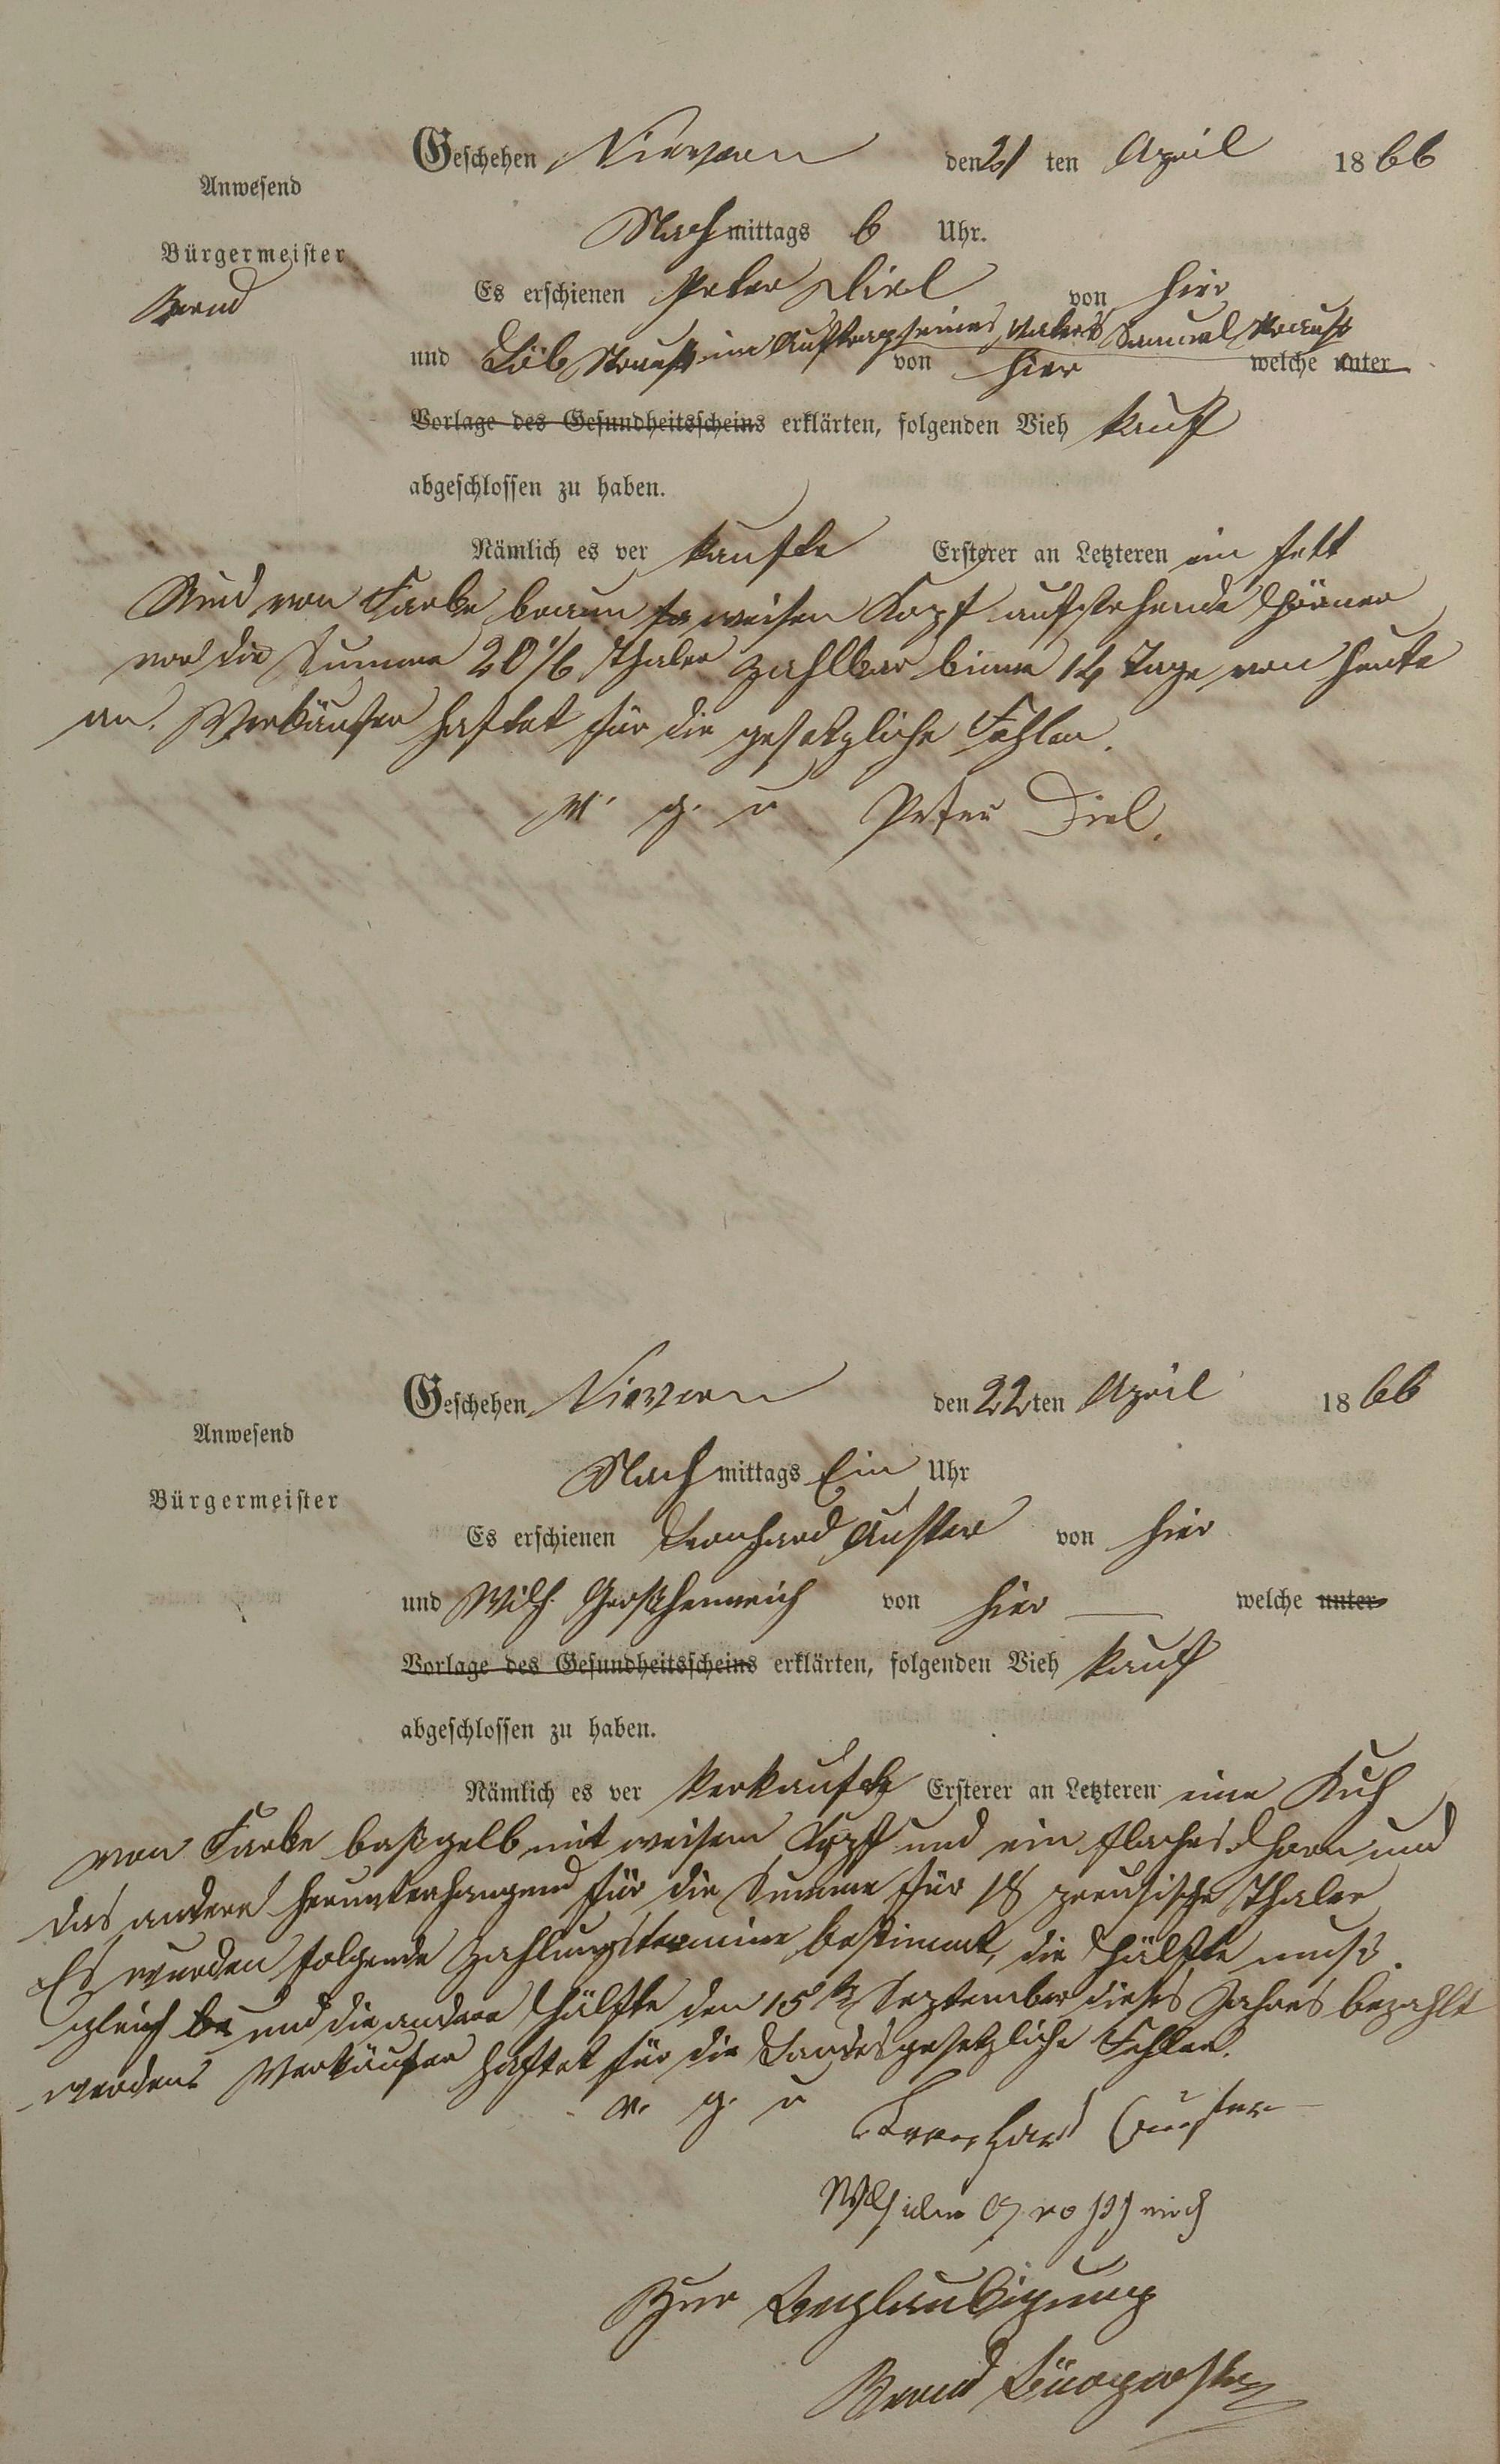 Geschehen Nievern den 21 ten April 1866
Anwesend
Nachmittags 6 Uhr.
Bürgermeister
Es erschienen Peter Diel von hier
und Löb Strauß im Auftrag seines Vaters Samuel Strauß von hier welche unter
Vorlage des Gesundheitsscheins erklärten, folgenden Vieh kauf
abgeschlossen zu haben.
Nämlich es ver kaufte Ersterer an Letzteren ein fett
Rind von Farbe braun weisen Kopf aufstehende Hörner
vor die Summe 20 1/6 Thaler zahlbar binne 14 Tage von heute
an. Verkäufer haftet für die gesetzliche Fehler.
V. g. u Peter Diel.
Geschehen Nievern den 22ten April 1866
Anwesend
Nachmittags Ein Uhr
Bürgermeister
Es erschienen Leonhard von hier
und Wilh. von hier welche unter
Vorlage des Gesundheitsscheins erklärten, folgenden Vieh kauf
abgeschlossen zu haben.
Nämlich es ver verkaufte Ersterer an Letzteren eine Kuh
von Farbe gelb mit weisem Kopf und ein flaches Horn und
das andere herunterhangend für die Summe für 18 preusische Thaler
Es wurden folgende Zahlungstermine bestimmt, die Hälfte muß
gleich be und die andere Hälfte den 15ten September dieses Jahres bezahlt
werden. Verkäufer haftet für die Landesgesetzliche Fehler.
v. g. u Leonhard
Wilhelm
Zur Beglaubigung